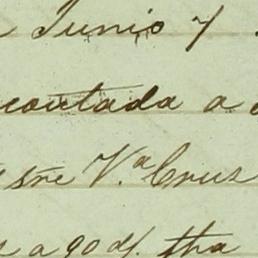 Junio 7
contada a
stre V.ª Cruz
a 90 d/. fha